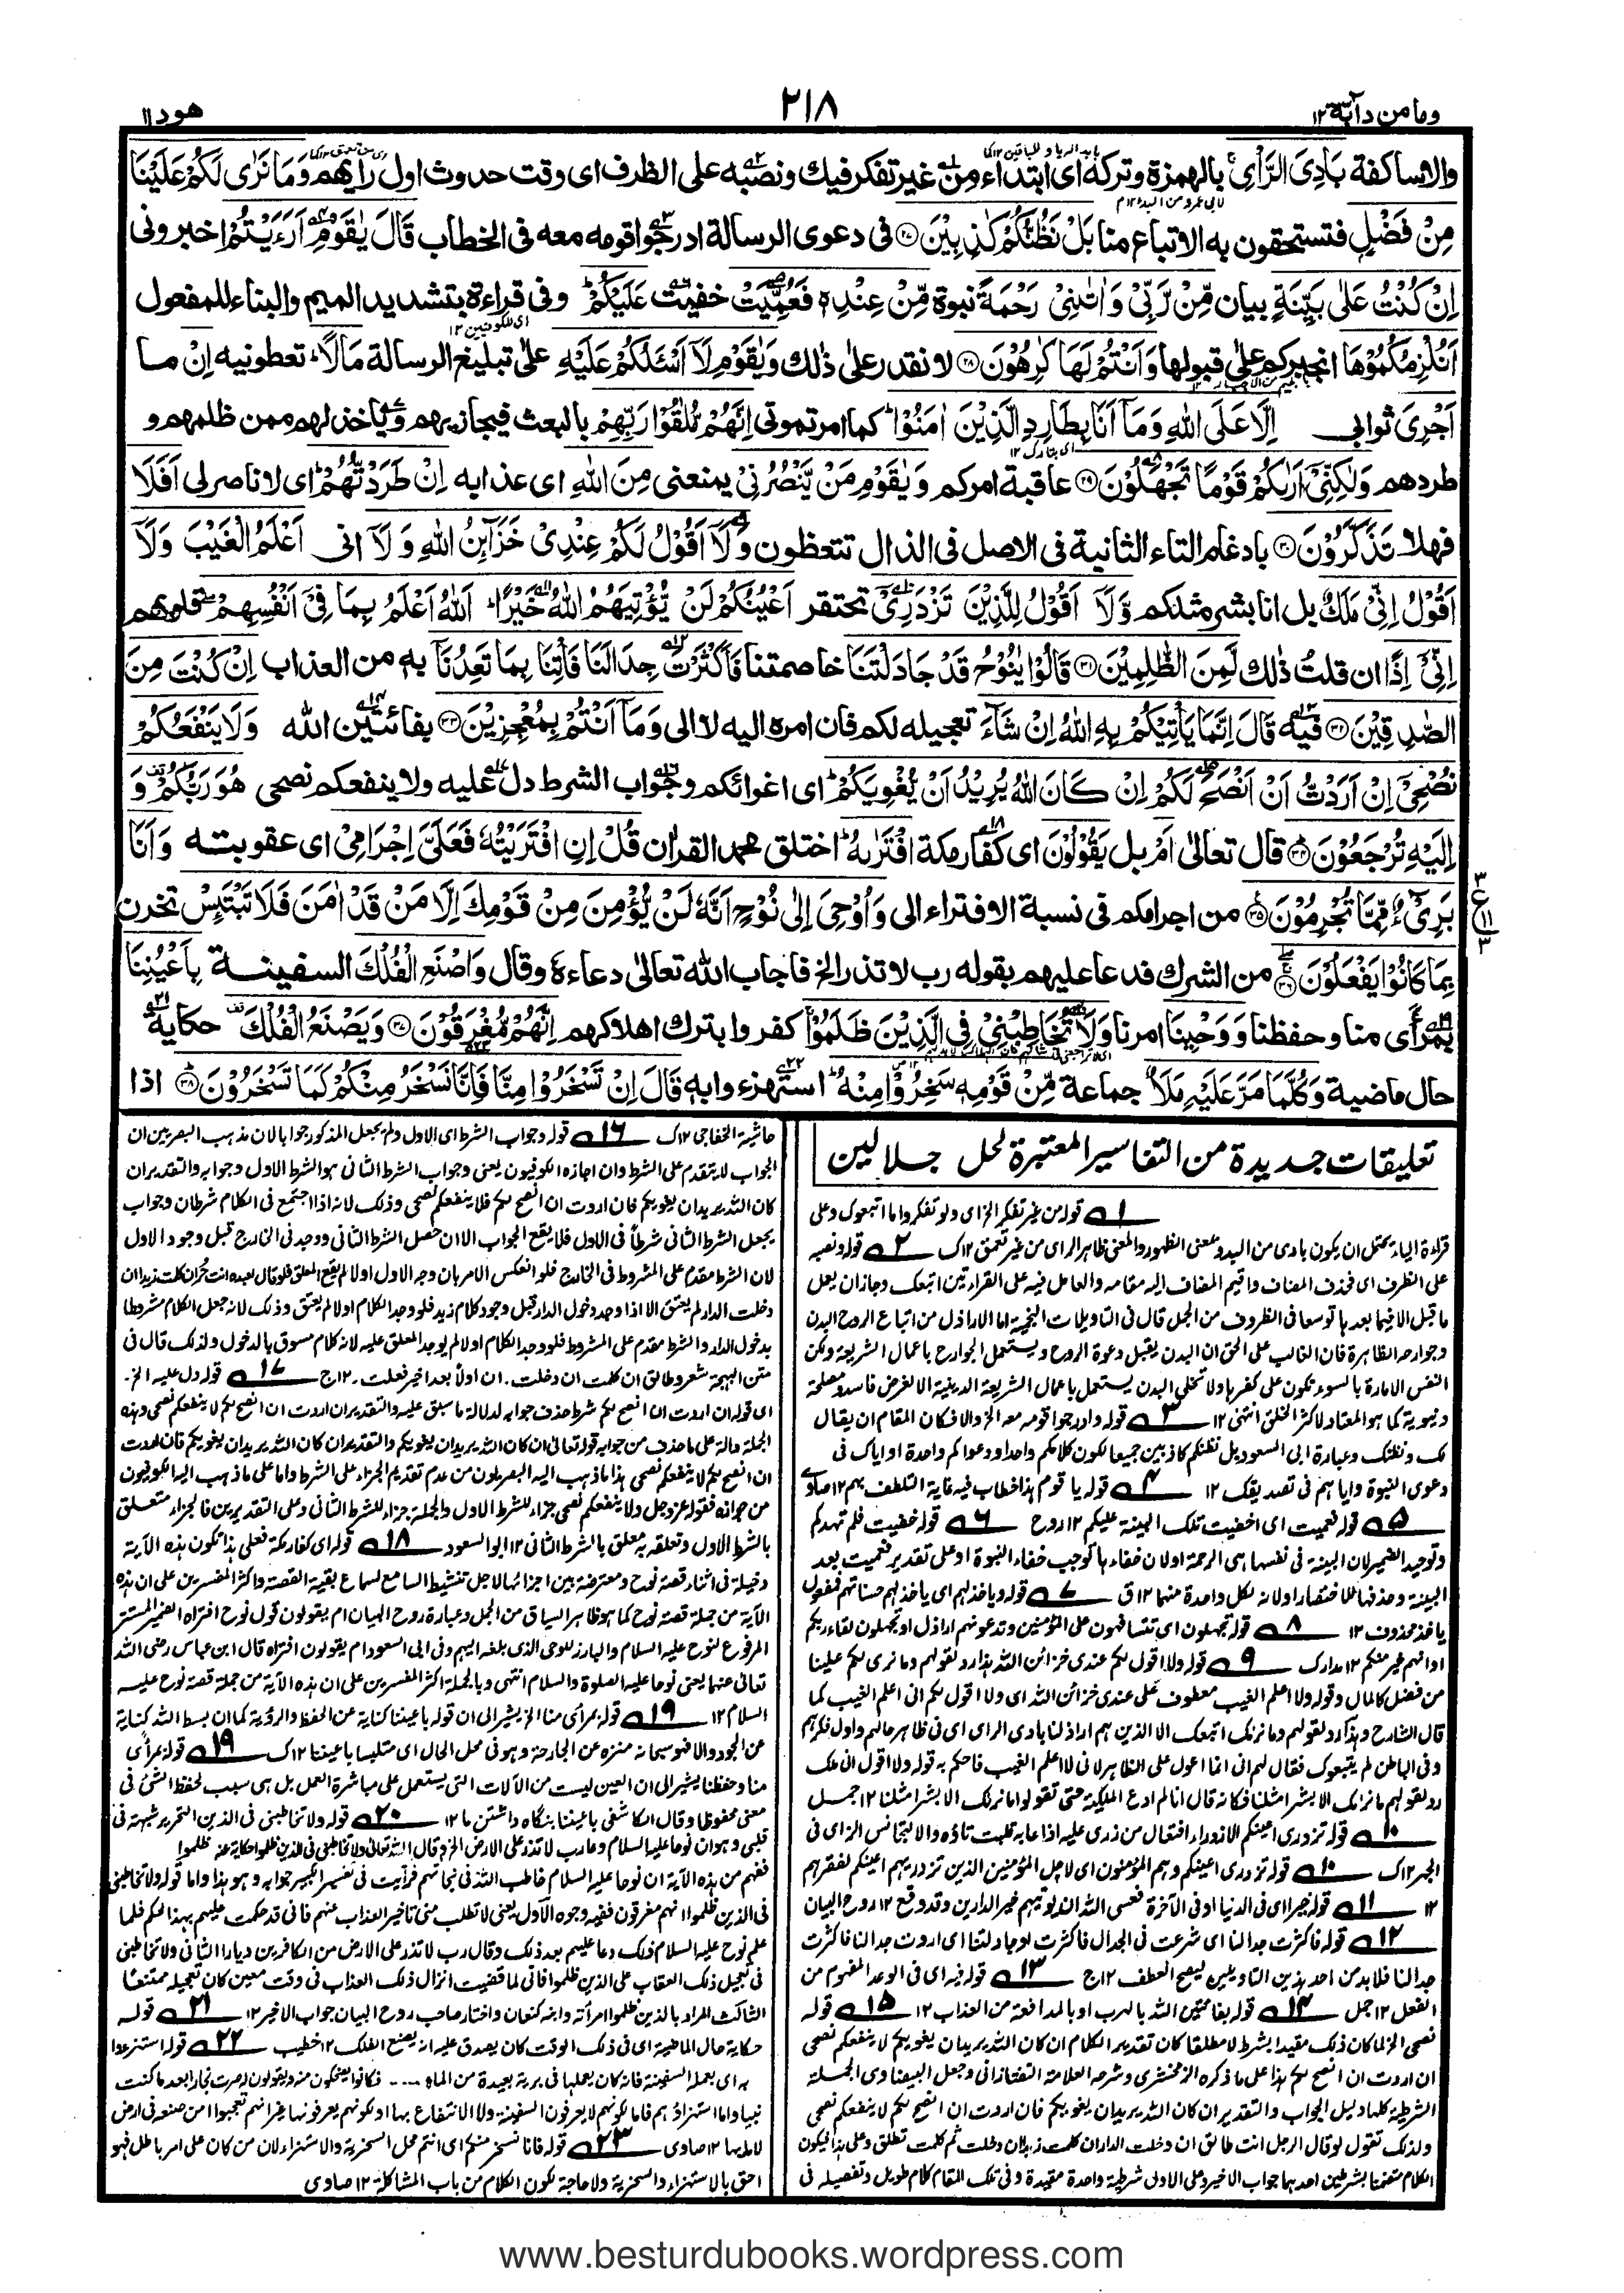 وما من دآبة ١٢
٢١٨
هود ١١
والاساكفة بَادِىَ الرَّاْىِ بالهمزة وتركه اى ابتداء من غير تفكر فيك ونصبه على الظرف اى وقت حدوث اول رأيهم وَمَا نَرٰى لَكُمْ عَلَيْنَا
مِنْ فَضْلٍ فتستحقون به الاتباع منا بَلْ نَظُنُّكُمْ كٰذِبِيْنَ ۝٢٧ فى دعوى الرسالة ادرجوا قومه معه فى الخطاب قَالَ يٰقَوْمِ اَرَءَيْتُمْ اخبرونى
اِنْ كُنْتُ عَلٰى بَيِّنَةٍ بيان مِّنْ رَّبِّىْ وَاٰتٰىنِىْ رَحْمَةً نبوة مِّنْ عِنْدِهٖ فَعُمِّيَتْ خفيت عَلَيْكُمْ وفى قراءة بتشديد الميم والبناء للمفعول
اَنُلْزِمُكُمُوْهَا انجبركم على قبولها وَاَنْتُمْ لَهَا كٰرِهُوْنَ ۝٢٨ لا نقدر على ذلك وَيٰقَوْمِ لَآ اَسْئَلُكُمْ عَلَيْهِ على تبليغ الرسالة مَالًا تعطونيه اِنْ ما
اَجْرِىَ ثوابى اِلَّا عَلَى اللهِ وَمَآ اَنَا بِطَارِدِ الَّذِيْنَ اٰمَنُوْا كما امرتمونى اِنَّهُمْ مُّلٰقُوْا رَبِّهِمْ بالبعث فيجازيهم وياخذ لهم ممن ظلمهم و
طردهم وَلٰكِنِّىْٓ اَرٰىكُمْ قَوْمًا تَجْهَلُوْنَ ۝٢٩ عاقبة امركم وَيٰقَوْمِ مَنْ يَّنْصُرُنِىْ يمنعنى مِنَ اللهِ اى عذابه اِنْ طَرَدْتُّهُمْ اى لا ناصر لى اَفَلَا
فهلا تَذَكَّرُوْنَ ۝٣٠ بادغام التاء الثانية فى الاصل فى الذال تتعظون وَلَآ اَقُوْلُ لَكُمْ عِنْدِىْ خَزَآئِنُ اللهِ وَلَآ انى اَعْلَمُ الْغَيْبَ وَلَآ
اَقُوْلُ اِنِّىْ مَلَكٌ بل انا بشر مثلكم وَّلَآ اَقُوْلُ لِلَّذِيْنَ تَزْدَرِىْٓ تحتقر اَعْيُنُكُمْ لَنْ يُّؤْتِيَهُمُ اللهُ خَيْرًا اَللهُ اَعْلَمُ بِمَا فِىْٓ اَنْفُسِهِمْ قلوبهم
اِنِّىْٓ اِذًا ان قلت ذلك لَّمِنَ الظّٰلِمِيْنَ ۝٣١ قَالُوْا يٰنُوْحُ قَدْ جَادَلْتَنَا خاصمتنا فَاَكْثَرْتَ جِدَالَنَا فَاْتِنَا بِمَا تَعِدُنَآ به من العذاب اِنْ كُنْتَ مِنَ
الصّٰدِقِيْنَ ۝٣٢ فيه قَالَ اِنَّمَا يَاْتِيْكُمْ بِهِ اللهُ اِنْ شَآءَ تعجيله لكم فان امره اليه لا الى وَمَآ اَنْتُمْ بِمُعْجِزِيْنَ ۝٣٣ بفائتين الله وَلَا يَنْفَعُكُمْ
نُصْحِىْٓ اِنْ اَرَدْتُّ اَنْ اَنْصَحَ لَكُمْ اِنْ كَانَ اللهُ يُرِيْدُ اَنْ يُّغْوِيَكُمْ اى اغوائكم وجواب الشرط دل عليه ولا ينفعكم نصحى هُوَ رَبُّكُمْ وَ
اِلَيْهِ تُرْجَعُوْنَ ۝٣٤ قال تعالى اَمْ بل يَقُوْلُوْنَ اى كفار مكة افْتَرٰىهُ اختلق محمد القران قُلْ اِنِ افْتَرَيْتُهٗ فَعَلَىَّ اِجْرَامِىْ اى عقوبته وَاَنَا
بَرِىْٓءٌ مِّمَّا تُجْرِمُوْنَ ۝٣٥ من اجرامكم فى نسبة الافتراء الى وَاُوْحِىَ اِلٰى نُوْحٍ اَنَّهٗ لَنْ يُّؤْمِنَ مِنْ قَوْمِكَ اِلَّا مَنْ قَدْ اٰمَنَ فَلَا تَبْتَئِسْ تحزن
بِمَا كَانُوْا يَفْعَلُوْنَ ۝٣٦ من الشرك فدعا عليهم بقوله رب لا تذر الخ فاجاب الله تعالى دعاءه وقال وَاصْنَعِ الْفُلْكَ السفينة بِاَعْيُنِنَا
بمرأى منا وحفظنا وَوَحْيِنَا امرنا وَلَا تُخَاطِبْنِىْ فِى الَّذِيْنَ ظَلَمُوْا كفروا بترك اهلاكهم اِنَّهُمْ مُّغْرَقُوْنَ ۝٣٧ وَيَصْنَعُ الْفُلْكَ حكاية
حال ماضية وَكُلَّمَا مَرَّ عَلَيْهِ مَلَاٌ جماعة مِّنْ قَوْمِهٖ سَخِرُوْا مِنْهُ استهزءوا به قَالَ اِنْ تَسْخَرُوْا مِنَّا فَاِنَّا نَسْخَرُ مِنْكُمْ كَمَا تَسْخَرُوْنَ ۝٣٨ اذا
تعليقات جديدة من التفاسير المعتبرة لحل جلالين
١ قوله من غير تفكر الخ اى ولو تفكروا ما اتبعوك وعلى
قراءة الياء يحتمل ان يكون بادى من البدو بمعنى الظهور والمعنى ظاهر الراى من غير تعمق ١٢ك ٢ قوله ونصبه
على الظرف اى فحذف المضاف واقيم المضاف اليه مقامه والعامل فيه على القراءتين اتبعك وجاز ان يعمل
ما قبل الا فيما بعدها توسعا فى الظروف من الجمل قال فى التاويلات النجمية اما الاراذل من اتباع الروح البدن
وجوارحه الظاهرة فان الغالب على الحق ان البدن يقبل دعوة الروح ويستعمل الجوارح باعمال الشريعة ولكن
النفس الامارة بالسوء تكون على كفرها ولا تخلى البدن يستعمل باعمال الشريعة الدينية الا لغرض فاسد ومصلحة
دنيوية كما هو المعتاد لاكثر الخلق انتهى ١٢ ٣ قوله وادرجوا قومه معه الخ والا فكان المقام ان يقال
لك ونظنك وعبارة ابى السعود بل نظنكم كاذبين جميعا لكون كلامكم واحدا ودعواكم واحدة او اياك فى
دعوى النبوة واياهم فى تصديقك ١٢ ٤ قوله يا قوم هذا خطاب فيه غاية التلطف بهم ١٢ صاوى
٥ قوله فعميت اى اخفيت تلك البينة عليكم ١٢ روح ٦ قوله خفيت فلم تهدكم
وتوحيد الضمير لان البينة فى نفسها هى الرحمة او لان خفاءها يوجب خفاء النبوة او على تقدير فعميت بعد
البينة وحذفها للاختصار او لانه لكل واحدة منهما ١٢ ق ٧ قوله وياخذ لهم اى ياخذ لهم حسناتهم فمفعول
ياخذ محذوف ١٢ ٨ قوله تجهلون اى تتسافهون على المؤمنين وتدعونهم اراذل او تجهلون لقاء ربكم
او انهم خير منكم ١٢ مدارك ٩ قوله ولا اقول لكم عندى خزائن الله هذا رد لقولهم وما نرى لكم علينا
من فضل كالمال وقوله ولا اعلم الغيب معطوف على عندى خزائن الله اى ولا اقول لكم انى اعلم الغيب كما
قال الشارح وهذا رد لقولهم وما نرىك اتبعك الا الذين هم اراذلنا بادى الراى اى فى ظاهر حالهم واول فكرهم
وفى الباطن لم يتبعوك فقال لهم انى انما اعول على الظاهر لانى لا اعلم الغيب فاحكم به قوله ولا اقول انى ملك
رد لقولهم ما نراك الا بشرا مثلنا فكانه قال انا لم ادع الملكية حتى تقولوا ما نرىك الا بشرا مثلنا ١٢ جمل
١٠ قوله تزدرى اعينكم الازدراء افتعال من زرى عليه اذا عابه قلبت تاؤه دالا لتجانس الزاى فى
الجهر ١٢ك ١٠ قوله تزدرى اعينكم وهم المؤمنون اى لاجل المؤمنين الذين تزدريهم اعينكم لفقرهم
١٢ ١١ قوله خيرا اى فى الدنيا او فى الآخرة فعسى الله ان يوتيهم خير الدارين وقد وقع ١٢ روح البيان
١٢ قوله فاكثرت جدالنا اى شرعت فى الجدال فاكثرت او جادلتنا اى اردت جدالنا فاكثرت
جدالنا فلا بد من احد هذين التاويلين ليصح العطف ١٢ج ١٣ قوله فيه اى فى الوعد المفهوم من
الفعل ١٢ جمل ١٤ قوله بفائتين الله بالهرب او بالمدافعة من العذاب ١٢ ١٥ قوله
نصحى الخ لما كان ذلك مقيدا بشرط لا مطلقا كان تقدير الكلام ان كان الله يريد ان يغويكم لا ينفعكم نصحى
ان اردت ان انصح لكم هذا على ما ذكره الزمخشرى وشرحه العلامة التفتازانى وجعل البيضاوى الجملة
الشرطية كلها دليل الجواب والتقدير ان كان الله يريد ان يغويكم فان اردت ان انصح لكم لا ينفعكم نصحى
ولذلك تقول لو قال الرجل انت طالق ان دخلت الدار ان كلمت زيدا فدخلت ثم كلمت تطلق وعلى هذا فيكون
الكلام متضمنا بشرطين احدهما جواب الاخير وعلى الاولى شرطية واحدة مقيدة وفى تلك المقام كلام طويل وتفصيله فى
حاشية الخفاجى ١٢ك ١٦ قوله وجواب الشرط اى الاول ولم يجعل المذكور جوابا لان مذهب البصريين ان
الجواب لا يتقدم على الشرط وان اجازه الكوفيون يعنى وجواب الشرط الثانى هو الشرط الاول وجوابه والتقدير ان
كان الله يريد ان يغويكم فان اردت ان انصح لكم فلا ينفعكم نصحى وذلك لانه اذا اجتمع فى الكلام شرطان وجواب
يجعل الشرط الثانى شرطا فى الاول فلا يقع الجواب الا ان حصل الشرط الثانى ووجد فى الخارج قبل وجود الاول
لان الشرط مقدم على المشروط فى الخارج فلو انعكس الامر بان وجد الاول اولا لم يقع المعلق فلو قال لعبده انت حر ان كلمت زيدا ان
دخلت الدار لم يعتق الا اذا وجد دخول الدار قبل وجود كلام زيد فلو وجد الكلام اولا لم يعتق وذلك لانه جعل الكلام مشروطا
بدخول الدار والشرط مقدم على المشروط فلو وجد الكلام اولا لم يوجد المعلق عليه لانه كلام مسبوق بالدخول ولذلك قال فى
متن البهجة شعر وطالق ان كلمت ان دخلت ۔ ان اولا بعد اخير فعلت ۔ ١٢ج ١٧ قوله دل عليه الخ ۔
اى قوله ان اردت ان انصح لكم شرط حذف جوابه لدلالة ما سبق عليه والتقدير ان اردت ان انصح لكم لا ينفعكم نصحى وهذه
الجملة دالة على ما حذف من جواب قوله تعالى ان كان الله يريد ان يغويكم والتقدير ان كان الله يريد ان يغويكم فان اردت
ان انصح لكم لا ينفعكم نصحى هذا ما ذهب اليه البصريون من عدم تقديم الجزاء على الشرط واما على ما ذهب اليه الكوفيون
من جوازه فقوله عز وجل ولا ينفعكم نصحى جزاء للشرط الاول والجملة جزاء للشرط الثانى وعلى التقديرين فالجزاء متعلق
بالشرط الاول وتعلقه به معلق بالشرط الثانى ١٢ ابو السعود ١٨ قوله اى كفار مكة فعلى هذا تكون هذه الآية
دخيلة فى اثناء قصة نوح ومعترضة بين اجزائها لاجل تنشيط السامع لسماع بقية القصة واكثر المفسرين على ان هذه
الآية من جملة قصة نوح كما هو ظاهر السياق من الجمل وعبارة روح البيان ام يقولون قول نوح افتراه الضمير المستتر
المرفوع لنوح عليه السلام والبارز للوحى الذى بلغه اليهم وفى ابى السعود ام يقولون افتراه قال ابن عباس رضى الله
تعالى عنهما يعنى نوحا عليه الصلوة والسلام انتهى وبالجملة اكثر المفسرين على ان هذه الآية من جملة قصة نوح عليه
السلام ١٢ ١٩ قوله بمرأى منا الخ يشير الى ان قوله باعيننا كناية عن الحفظ والرؤية كما ان بسط اليد كناية
عن الجود والا فهو سبحانه منزه عن الجارحة وهو فى محل الحال اى متلبسا باعيننا ١٢ك ١٩ قوله بمرأى
منا وحفظنا يشير الى ان العين ليست من الآلات التى يستعمل على مباشرة العمل بل هى سبب لحفظ الشئ فى
معنى محفوظا وقال الكاشفى باعيننا بنگاه داشتن ما ١٢ ٢٠ قوله ولا تخاطبنى فى الذين الخ تحرير شبهة فى
قلبى وهو ان نوحا عليه السلام دعا رب لا تذر على الارض الخ ثم قال الله تعالى ولا تخاطبنى فى الذين ظلموا حكاية عنه
ففهم من هذه الآية ان نوحا عليه السلام خاطب الله فى نجاتهم فرأيت فى تفسير الكبير جوابه وهو هذا واما قوله ولا تخاطبنى
فى الذين ظلموا انهم مغرقون ففيه وجوه الاول يعنى لا تطلب منى تاخير العذاب عنهم فانى قد حكمت عليهم بهذا الحكم فلما
علم نوح عليه السلام ذلك دعا عليهم بعد ذلك وقال رب لا تذر على الارض من الكافرين ديارا الثانى ولا تخاطبنى
فى تعجيل ذلك العقاب على الذين ظلموا فانى لما قضيت انزال ذلك العذاب فى وقت معين كان تعجيله ممتنعا
الثالث المراد بالذين ظلموا امرأته وابنه كنعان واختار صاحب روح البيان جواب الاخير ١٢ ٢١ قوله
حكاية حال الماضية اى فى ذلك الوقت كان يصدق عليه انه يصنع الفلك ١٢ خطيب ٢٢ قوله استهزءوا
به اى بعمله السفينة فانه كان يعملها فى برية بعيدة من الماء .... فكانوا يضحكون منه ويقولون له صرت نجارا بعد ما كنت
نبيا واما استهزاؤهم فاما لكونهم لا يعرفون السفينة ولا الانتفاع بها او لكونهم يعرفونها غير انهم تعجبوا من صنعه فى ارض
لا ماء بها ١٢ صاوى ٢٣ قوله فانا نسخر منكم اى انتم محل السخرية والاستهزاء لان من كان على امر باطل فهو
احق بالاستهزاء والسخرية ولا حاجة لكون الكلام من باب المشاكلة ١٢ صاوى
www.besturdubooks.wordpress.com